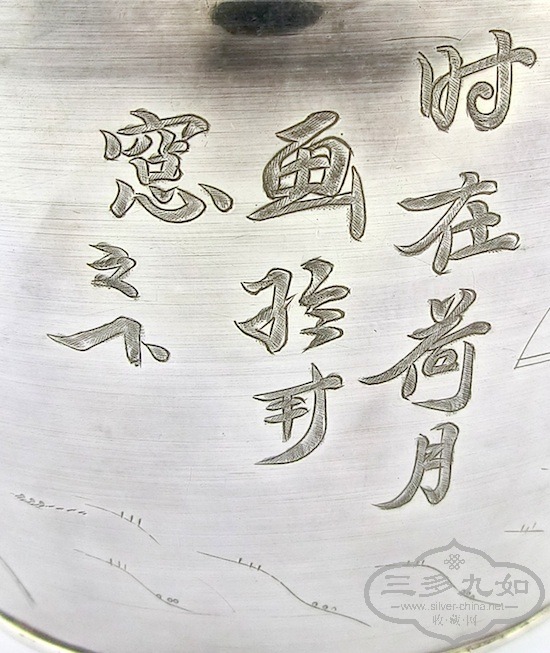 时在荷月
画於
窓之下
三多九如
www.silver-china.net
收·藏·网